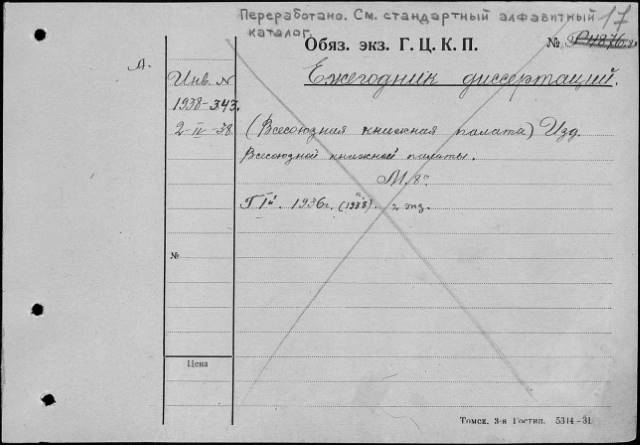 Переработано. См. стандартный алфавитный 17
каталог.
Обяз. экз. Г. Ц. К. П. №
А.
Инв. №
1938-343.
2-IV-38.
Ежегодник диссертаций.
(Всесоюзная книжная палата) Изд.
Всесоюзной книжной палаты.
М. 8°
Г. I й. 1936 г. (1938). 2 экз.
№
Цена
Томск. 3-я Гостип. 5314-31